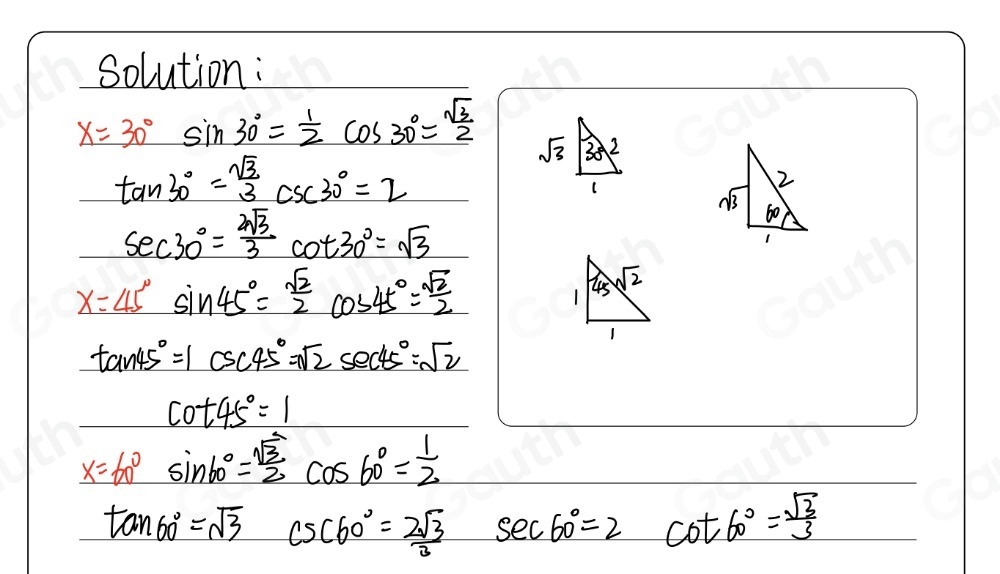 Solution:
x=30° sin30°=1/2 cos30°=√3/2
tan30°=√3/3 csc30°=2
sec30°=2√3/3 cot30°=√3
x=45° sin45°=√2/2 cos45°=√2/2
tan45°=1 csc45°=√2 sec45°=√2
cot45°=1
x=60° sin60°=√3/2 cos60°=1/2
tan60°=√3 csc60°=2√3/3 sec60°=2 cot60°=√3/3
√3 30° 2
1
√3 2
60
1
1 45 √2
1
Gauth